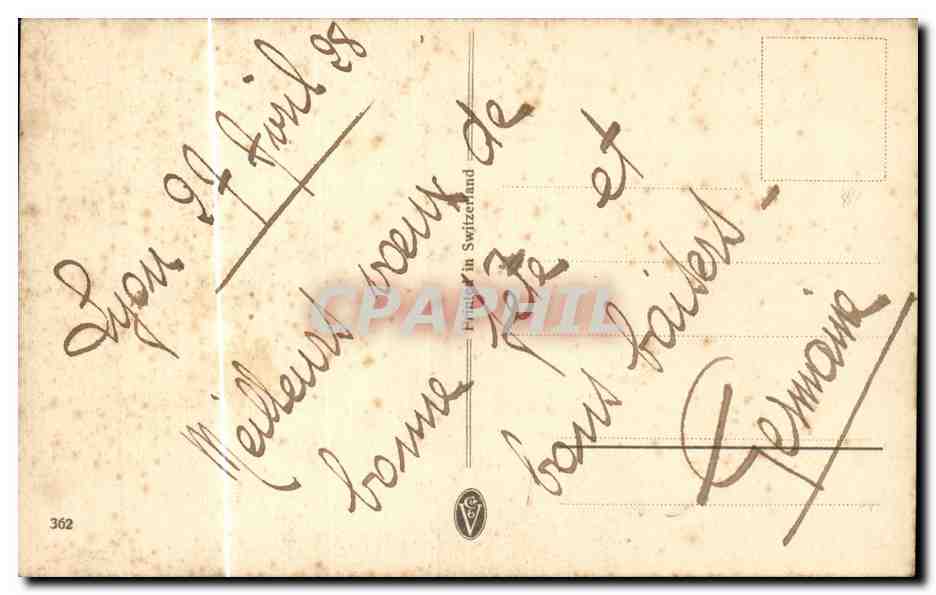 Lyon 27 Avril 28
Meilleurs voeux de
bonne fête et
bons baisers -
Germaine
Printed in Switzerland
CPARHIL
362